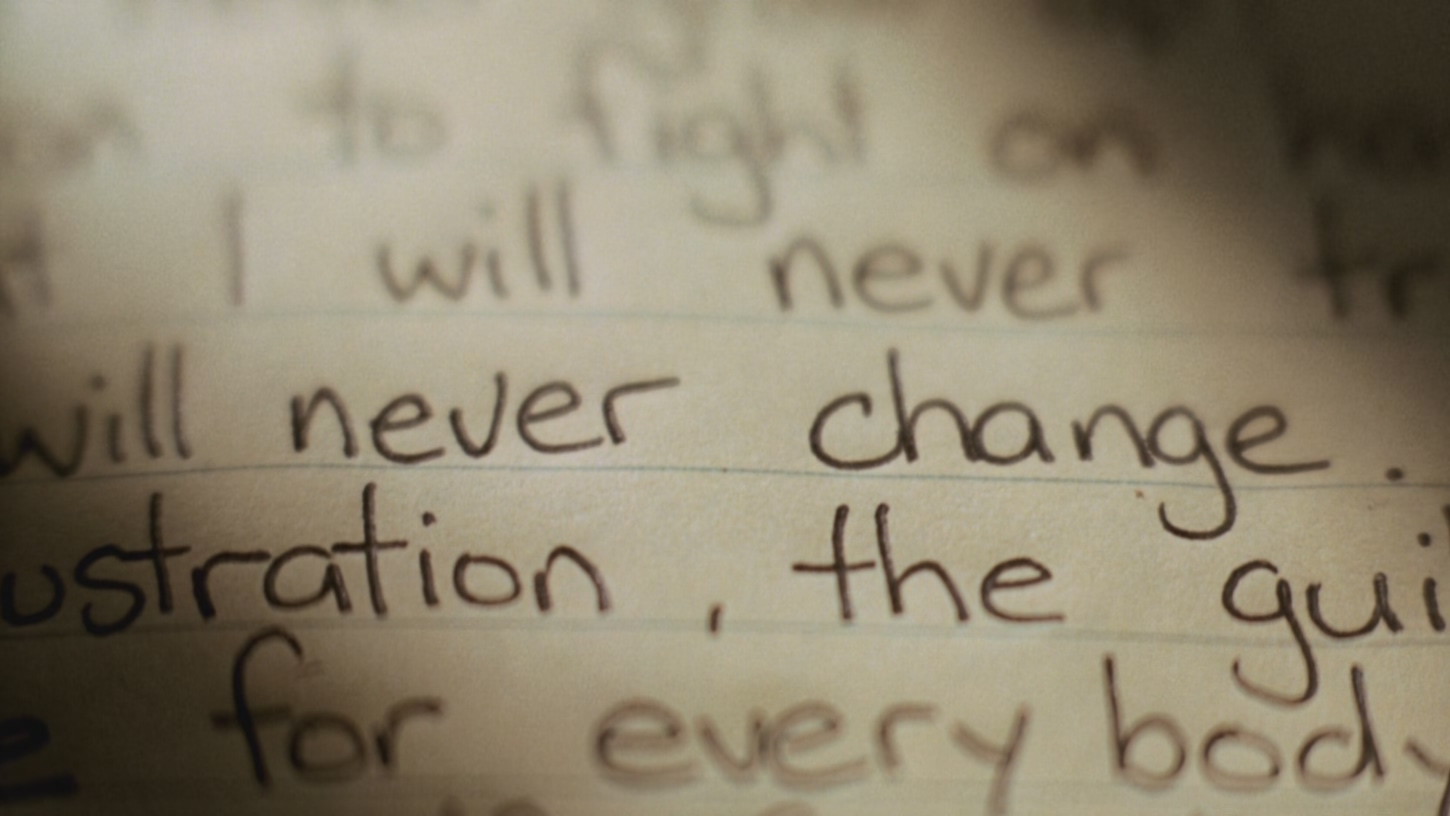 to fight on
I will never tr
will never change.
ustration, the gui
e for every body